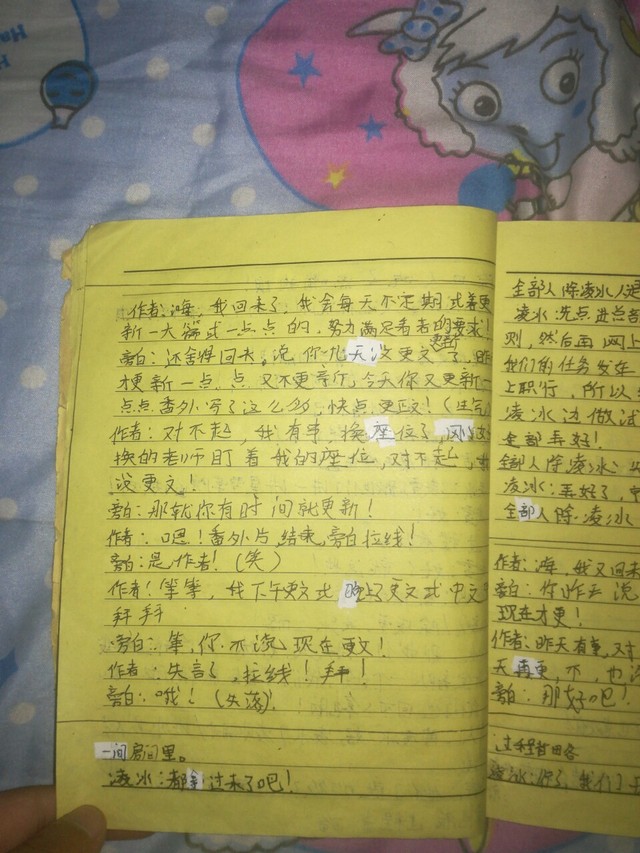 作者:嗨,我回来了,我会每天不定期或着更
新一大篇或一点点的,努力满足看者的要求!
旁白:还舍得回来,说,你几天没更文了,昨
才更新一点点 又不更新,今天你又更新一
点点番外 写了这么多,快点更文!(生气)
作者:对不起,我有事,换座位了,刚
换的老师盯着我的座位,对不起,
没更文!
旁白:那就你有时间就更新!
作者:嗯!番外片,结束,旁白拉线!
旁白:是,作者!(笑)
作者!等等,我下午更文或晚上更文或中文
拜拜
旁白:等,你不说,现在更文!
作者:失言了,拉线!拜!
旁白:哦!(失落)。
一间房间里。
凌冰:都到过来了吧!
全部人除凌冰人
凌冰:先点进总
则,然后再网上
我们的任务发生
上职行,所以
凌冰边做试
全部弄好!
全部人除凌冰:
凌冰:弄好了,
全部人除凌冰
作者:嗨,我又回来
旁白:你昨天说
现在才更!
作者:昨天有事,对
天再更,不,也
旁白:那好吧!
过程省略
凌冰:好了,我们